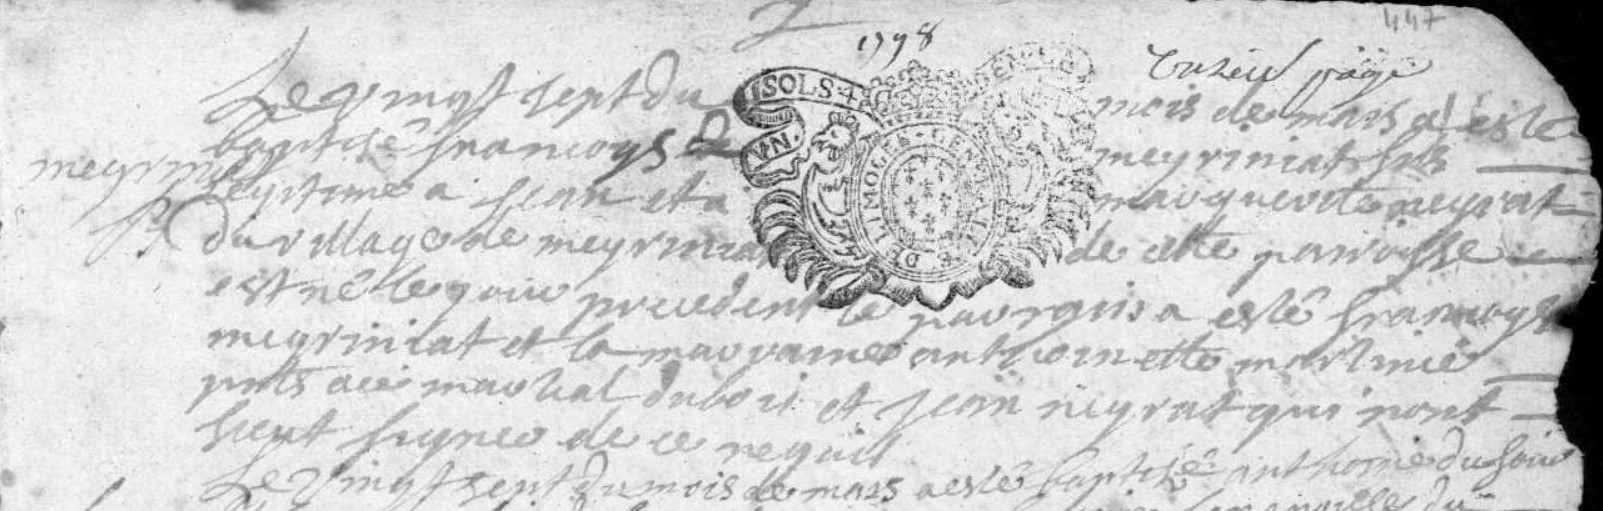 447
1798
page
UN. SOLS
GENERALITE DE LIMOGES
Le vingt sept du mois de mars a este
baptisé francoys de meyriniat fils
meyriniat
legitime a Jean et a marguerite neyrat
du village de meyriniat de cette parroisse
est né le jour precedent le parrain a esté francoys
meyriniat et la marraine anthoinette martinie
pnts a ce martial dubois et Jean neyrat qui nont
sceut signer de ce requis
Le vingt sept du mois de mars a esté baptisé anthoine du
du